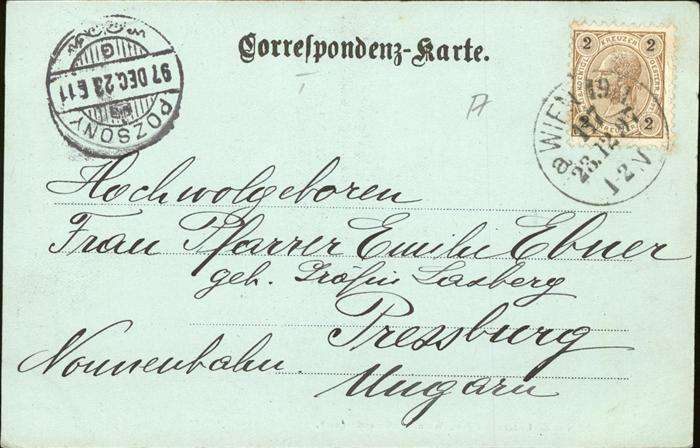 Correspondenz-Karte.
POZSONY
97 DEC. 23 E 11
2 KREUZER 2
2
WIEN
23.12.97
1-2 N
Hochwolgeboren
Frau Pfarrer Emilie Ebner
geb. Gräfin Lasberg
Pressburg
Nonnenbahn.
Ungarn